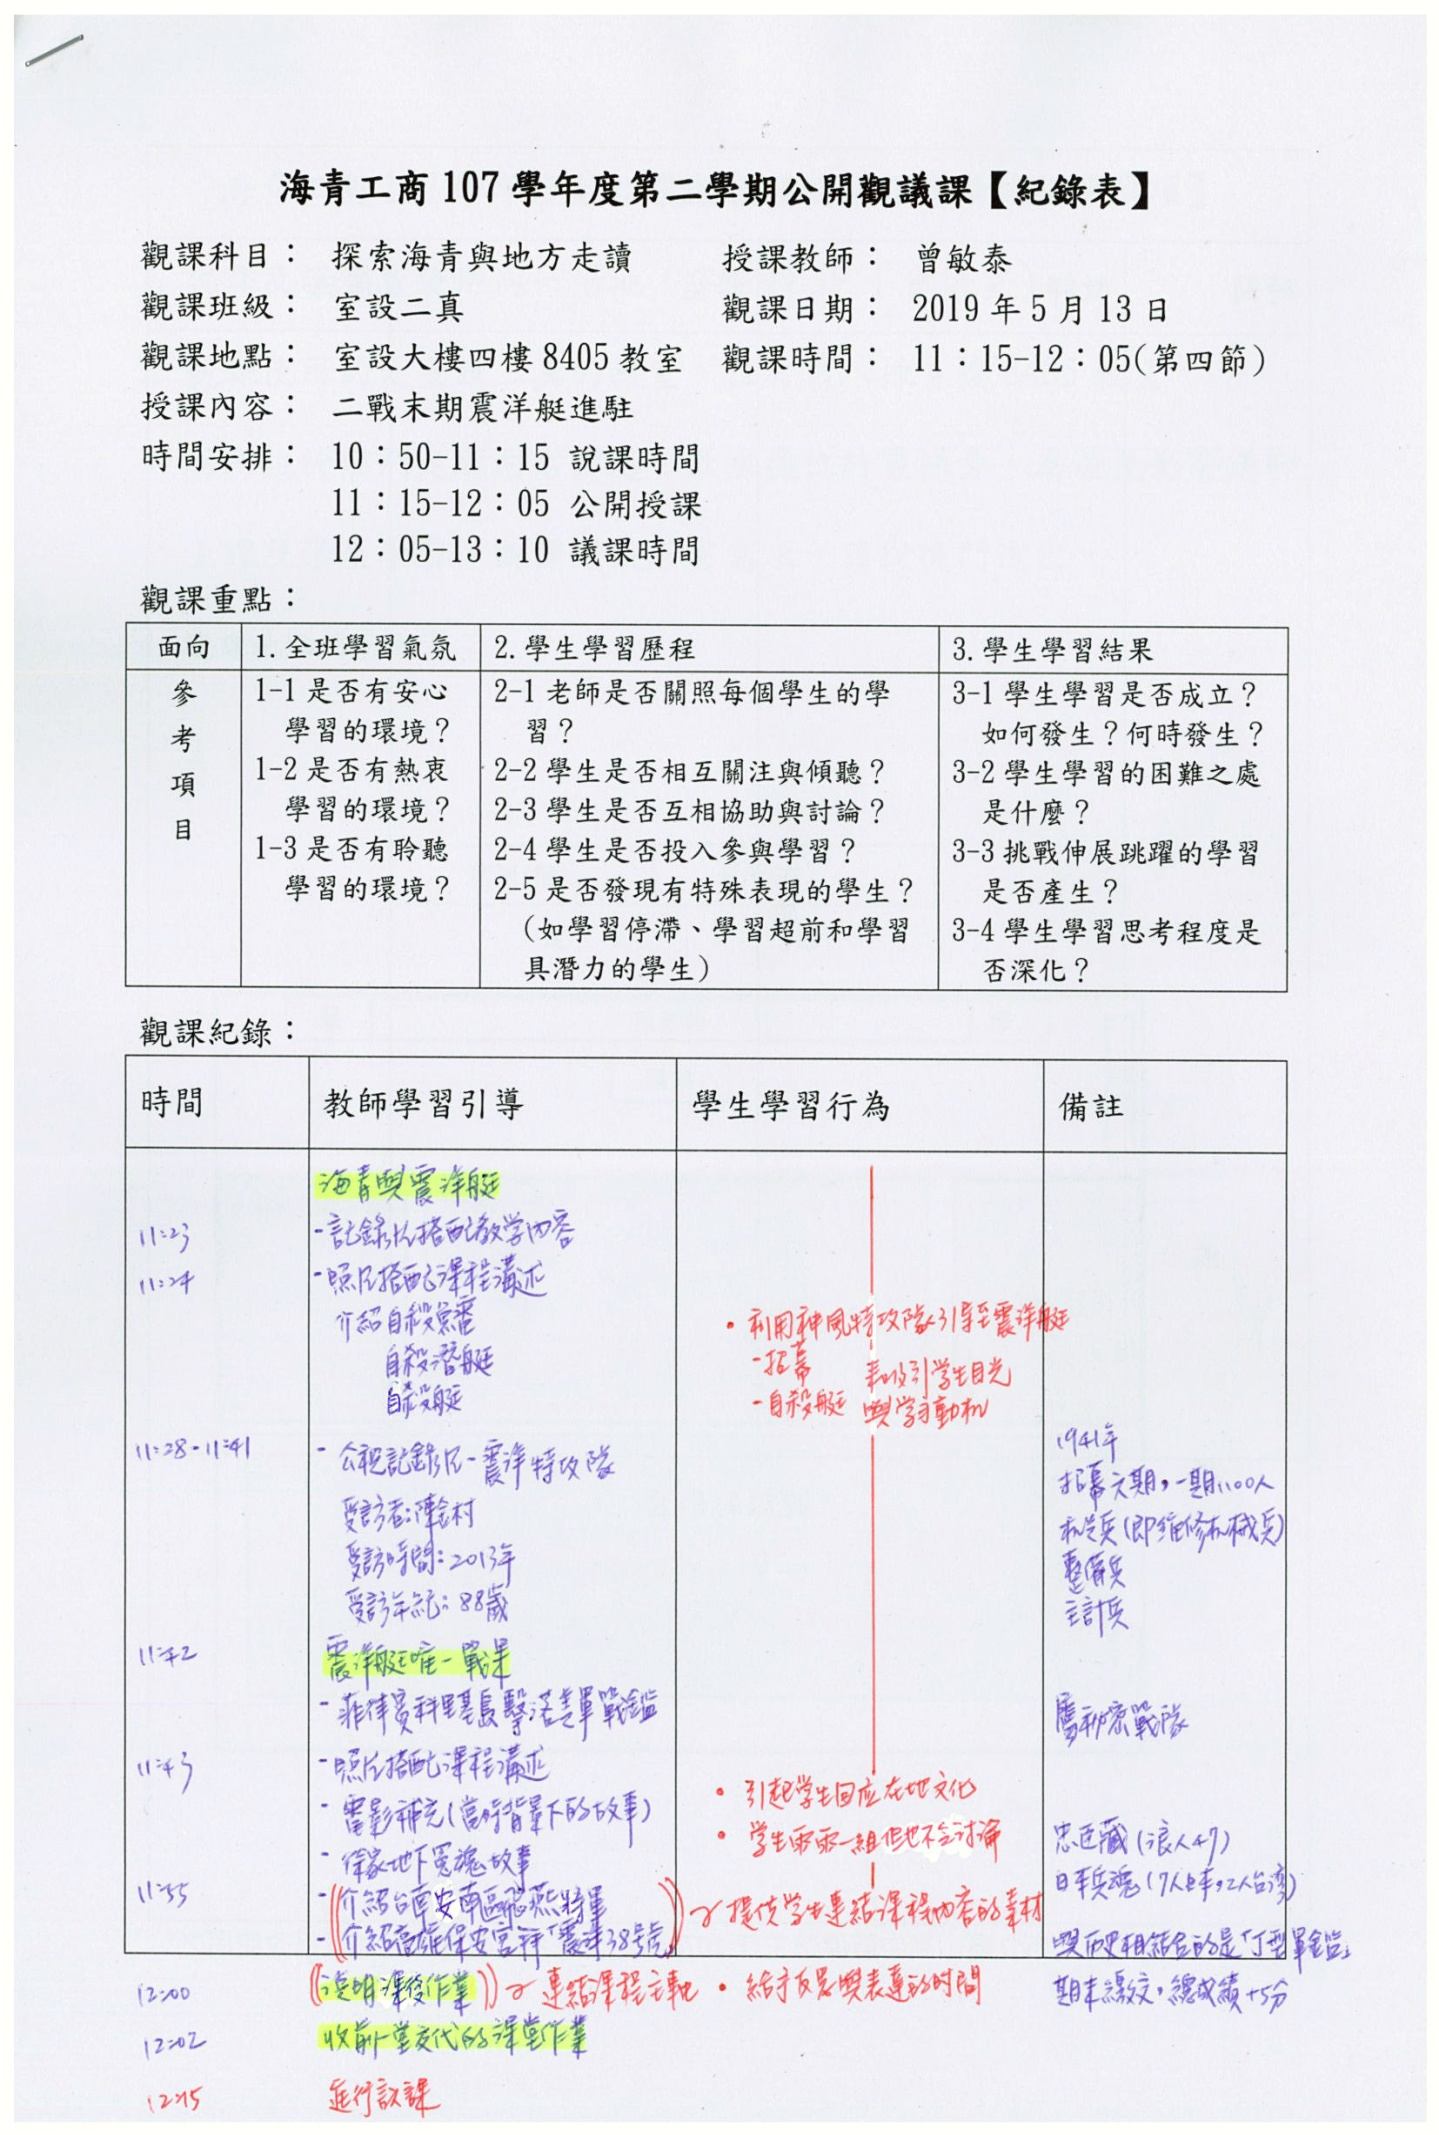 海青工商 107 學年度第二學期公開觀議課【紀錄表】
觀課科目： 探索海青與地方走讀 授課教師： 曾敏泰
觀課班級： 室設二真 觀課日期： 2019 年 5 月 13 日
觀課地點： 室設大樓四樓 8405 教室 觀課時間： 11：15-12：05(第四節)
授課內容： 二戰末期震洋艇進駐
時間安排： 10：50-11：15 說課時間
11：15-12：05 公開授課
12：05-13：10 議課時間
觀課重點：
面向 1.全班學習氣氛 2.學生學習歷程 3.學生學習結果
參考項目
1-1 是否有安心
學習的環境？
1-2 是否有熱衷
學習的環境？
1-3 是否有聆聽
學習的環境？
2-1 老師是否關照每個學生的學
習？
2-2 學生是否相互關注與傾聽？
2-3 學生是否互相協助與討論？
2-4 學生是否投入參與學習？
2-5 是否發現有特殊表現的學生？
(如學習停滯、學習超前和學習
具潛力的學生)
3-1 學生學習是否成立？
如何發生？何時發生？
3-2 學生學習的困難之處
是什麼？
3-3 挑戰伸展跳躍的學習
是否產生？
3-4 學生學習思考程度是
否深化？
觀課紀錄：
時間 教師學習引導 學生學習行為 備註
海青與震洋艇
11:23 -記錄片搭配教学內容
11:24 -照片搭配課程講述
介紹自殺魚雷
自殺潛艇
自殺艇
•利用神風特攻隊引導至震洋艇
-招募 來吸引学生目光
-自殺艇 與学習動机
11:28-11:41 -公視記錄片-震洋特攻隊
受訪者:陳金村
受訪時間:2013年
受訪年紀:88歲
1941年
招募六期，一期1100人
机关兵(即維修机械兵)
整備兵
主計兵
11:42 震洋艇唯一戰果
-菲律賓科里基島擊沼美軍戰鑑
11:43 -照片搭配課程講述
•引起学生回应在地文化
-電影補充(當時背景下的故事)
•学生兩兩一組但也不会討論
忠臣藏(浪人47)
-徐家地下冤魂故事
日本兵魂(7人日本,2人台湾)
11:55 -介紹台南安南區飛燕將軍
-介紹高雄保安宮拜「震洋38号」
提供学生連結課程內容的素材
與历史相結合的是「J型軍鑑」
12:00 說明課後作業 連結課程主軸 •給予反思與表達的时间
期末繳交，總成績+5分
12:02 收前一堂交代的課堂作業
12:15 進行議課